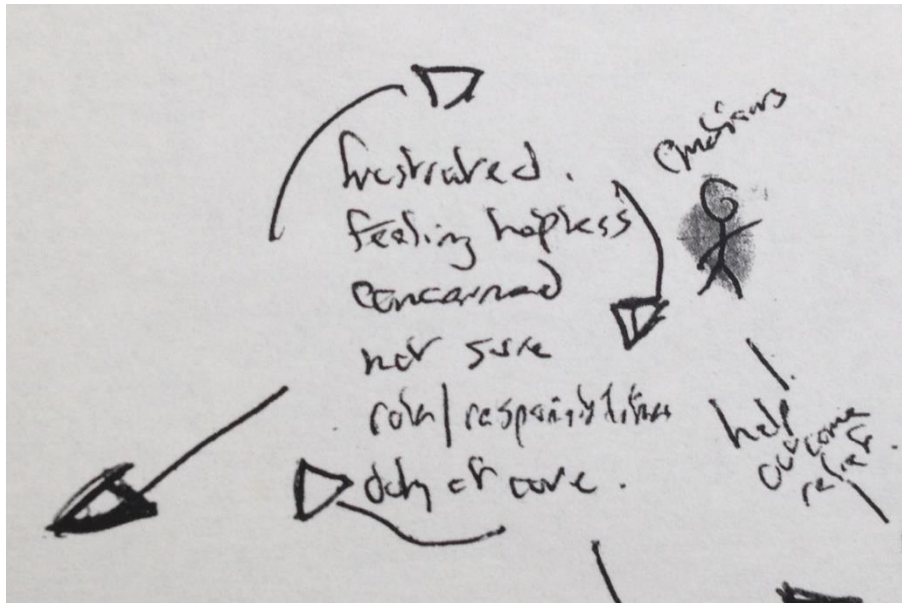 frustrated.
feeling hopless
concerned
not sure
role/responsibilities
duty of care.
emotions
help
outcome
relief.